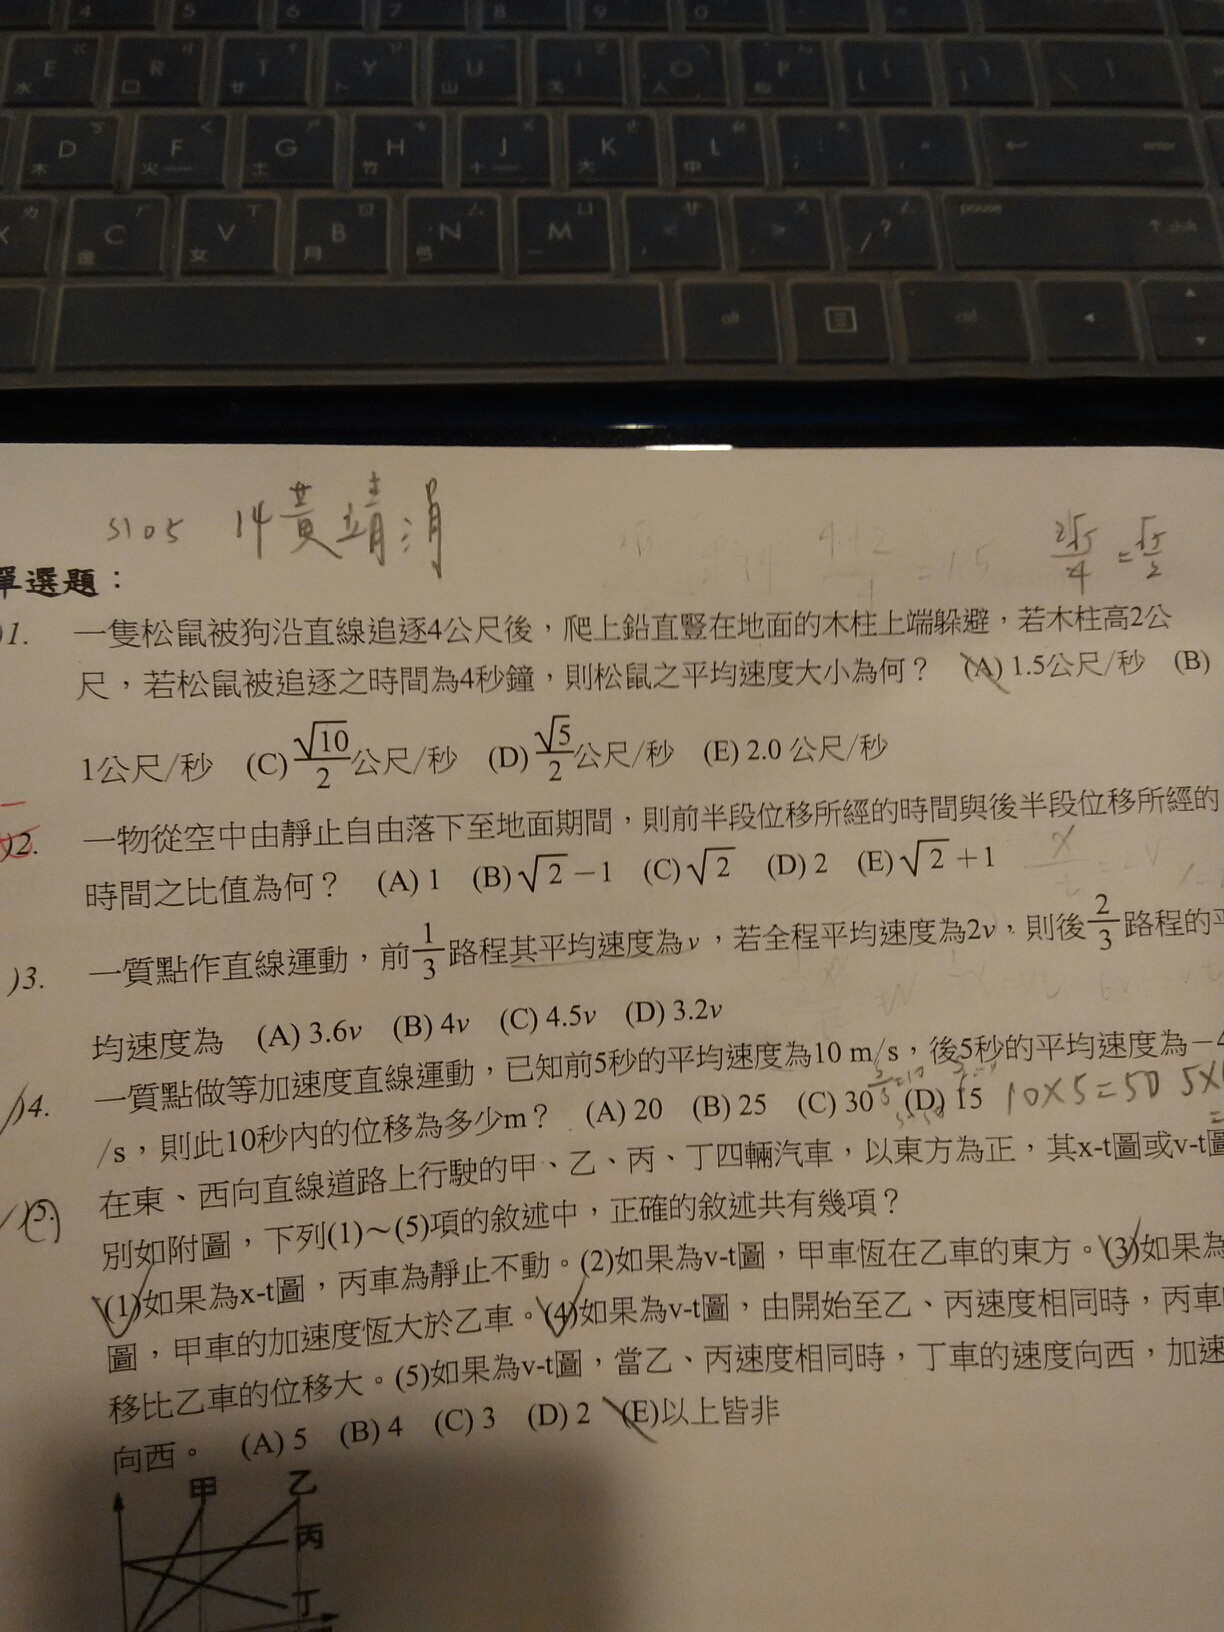 4 5 6 7 8 9 0
E R T Y U I O P
水 口 廿 卜 山 戈 人 心
D F G H J K L enter
木 火 土 竹 十 大 中
X C V B N M < > / ? pause ↑ shift
金 女 月 弓 一
alt ctrl
S105 14黃靖涓
2√5/4 = √5/2
單選題：
)1. 一隻松鼠被狗沿直線追逐4公尺後，爬上鉛直豎在地面的木柱上端躲避，若木柱高2公
尺，若松鼠被追逐之時間為4秒鐘，則松鼠之平均速度大小為何？ (A) 1.5公尺/秒 (B)
1公尺/秒 (C) √10/2 公尺/秒 (D) √5/2 公尺/秒 (E) 2.0 公尺/秒
)2. 一物從空中由靜止自由落下至地面期間，則前半段位移所經的時間與後半段位移所經的
時間之比值為何？ (A) 1 (B) √2 −1 (C) √2 (D) 2 (E) √2 +1
)3. 一質點作直線運動，前1/3路程其平均速度為v，若全程平均速度為2v，則後2/3路程的平
均速度為 (A) 3.6v (B) 4v (C) 4.5v (D) 3.2v
)4. 一質點做等加速度直線運動，已知前5秒的平均速度為10 m/s，後5秒的平均速度為−4
/s，則此10秒內的位移為多少m？ (A) 20 (B) 25 (C) 30 (D) 15 10×5=50 5×
5. 在東、西向直線道路上行駛的甲、乙、丙、丁四輛汽車，以東方為正，其x-t圖或v-t圖
別如附圖，下列(1)～(5)項的敘述中，正確的敘述共有幾項？
(1)如果為x-t圖，丙車為靜止不動。(2)如果為v-t圖，甲車恆在乙車的東方。(3)如果為
圖，甲車的加速度恆大於乙車。(4)如果為v-t圖，由開始至乙、丙速度相同時，丙車
移比乙車的位移大。(5)如果為v-t圖，當乙、丙速度相同時，丁車的速度向西，加速
向西。 (A) 5 (B) 4 (C) 3 (D) 2 (E)以上皆非
甲 乙
丙
丁